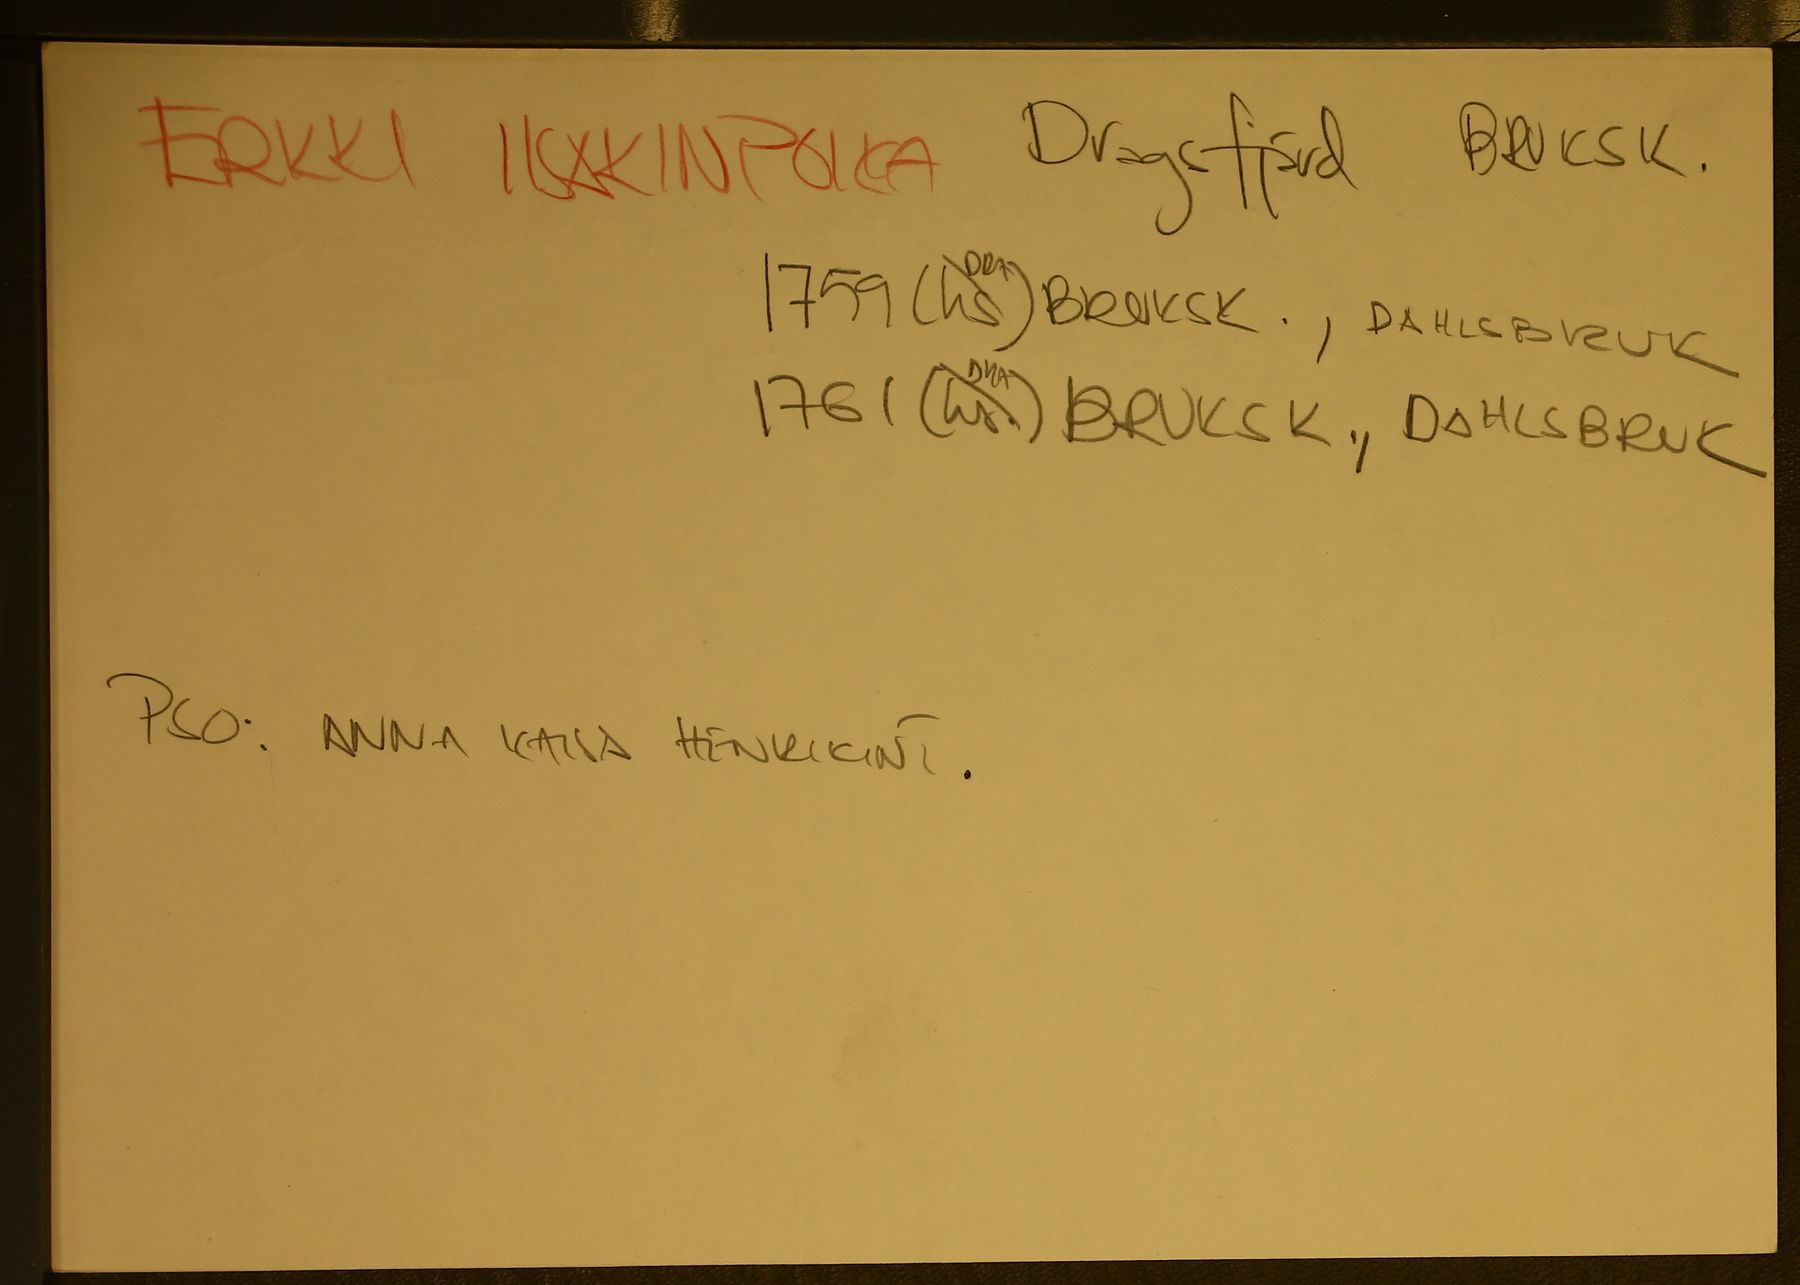 ERKKI IISAKINPOIKA Dragsfjärd BRUKSK.
1759 (hs DRA) BRUKSK., DAHLSBRUK
1761 (hs. DRA) BRUKSK., DAHLSBRUK
PSO: ANNA KAISA HENRIKINT.